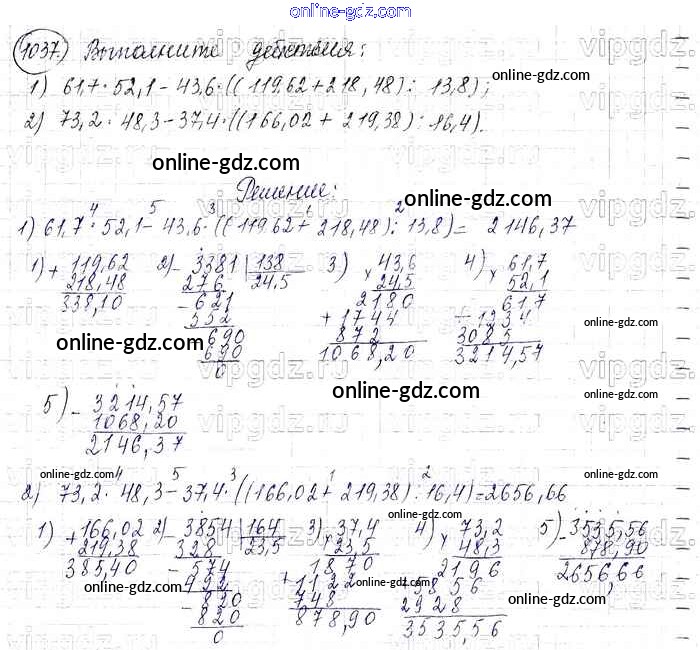 online-gdz.com
1037.) Выполните действия:
1) 61,7 · 52,1 - 43,6 · ((119,62 + 218,48) : 13,8);
online-gdz.com
2) 73,2 · 48,3 - 37,4 · ((166,02 + 219,38) : 16,4).
online-gdz.com
Решение:
online-gdz.com
4 5 3 1 2
1) 61,7 · 52,1 - 43,6 · ((119,62 + 218,48) : 13,8) = 2146,37
1) + 119,62 2) - 3381 | 138 3) × 43,6 4) × 61,7
218,48 276 24,5 24,5 52,1
338,10 - 621 2180 617
552 + 1744 + 1234
690 872 3085
690 1068,20 3214,57
0
online-gdz.com
online-gdz.com
online-gdz.com
online-gdz.com
5) - 3214,57
1068,20
2146,37
online-gdz.com
online-gdz.com
4 5 3 1 2
2) 73,2 · 48,3 - 37,4 · ((166,02 + 219,38) : 16,4) = 2656,66
online-gdz.com
1) + 166,02 2) - 3854 | 164 3) × 37,4 4) × 73,2 5) - 3535,56
219,38 328 23,5 23,5 48,3 878,90
385,40 - 574 1870 2196 2656,66
492 + 1122 5856
- 820 748 2928
820 878,90 3535,56
0
online-gdz.com
online-gdz.com
online-gdz.com
vipgdz.ru